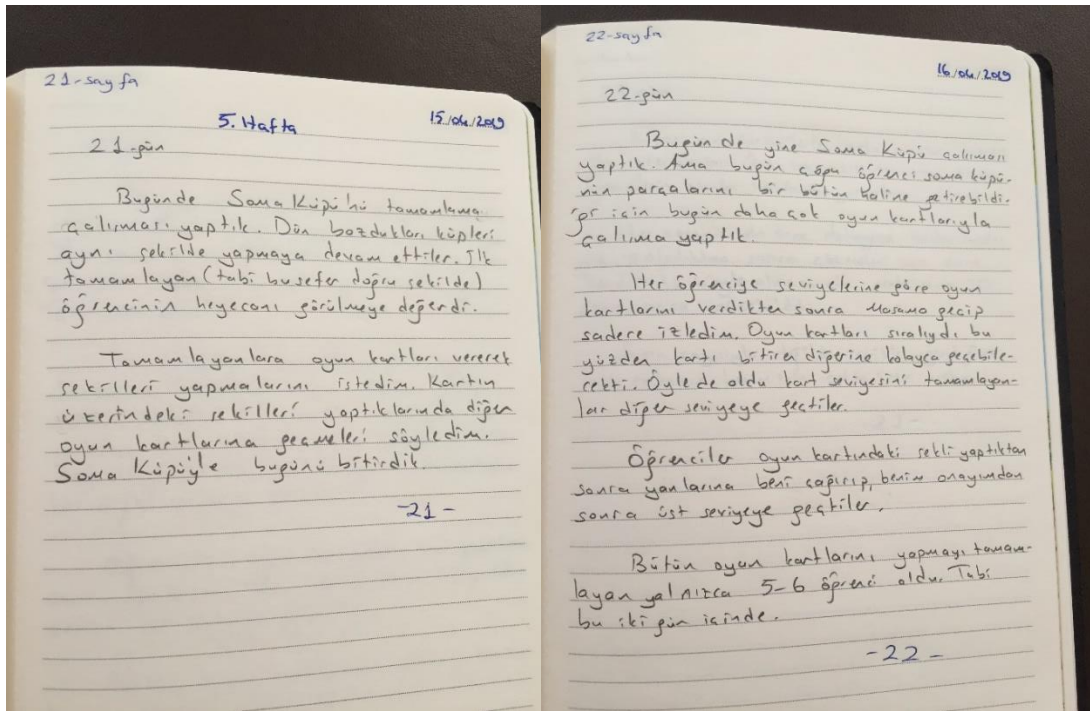 21-sayfa
5. Hafta 15/04/2019
21-gün
Bugünde Soma Küpü'nü tamamlama
çalışması yaptık. Dün bozdukları küpleri
aynı şekilde yapmaya devam ettiler. İlk
tamamlayan (tabi bu sefer doğru şekilde)
öğrencinin heyecanı görülmeye değerdi.
Tamamlayanlara oyun kartları vererek
şekilleri yapmalarını istedim. Kartın
üzerindeki şekilleri yaptıklarında diğer
oyun kartlarına geçmeleri söyledim.
Soma Küpüyle bugünü bitirdik.
-21-
22-sayfa
16/04/2019
22-gün
Bugünde yine Soma Küpü çalışması
yaptık. Ama bugün çoğu öğrenci soma küpü-
nün parçalarını bir bütün haline getirebildi-
ği için bugün daha çok oyun kartlarıyla
çalışma yaptık.
Her öğrenciye seviyelerine göre oyun
kartlarını verdikten sonra masama geçip
sadece izledim. Oyun kartları sıralıydı bu
yüzden kartı bitiren diğerine kolayca geçebile-
cekti. Öyle de oldu kart seviyesini tamamlayan-
lar diğer seviyeye geçtiler.
Öğrenciler oyun kartındaki şekli yaptıktan
sonra yanlarına beni çağırıp, benim onayımdan
sonra üst seviyeye geçtiler.
Bütün oyun kartlarını yapmayı tamam-
layan yalnızca 5-6 öğrenci oldu. Tabi
bu iki gün içinde.
-22-